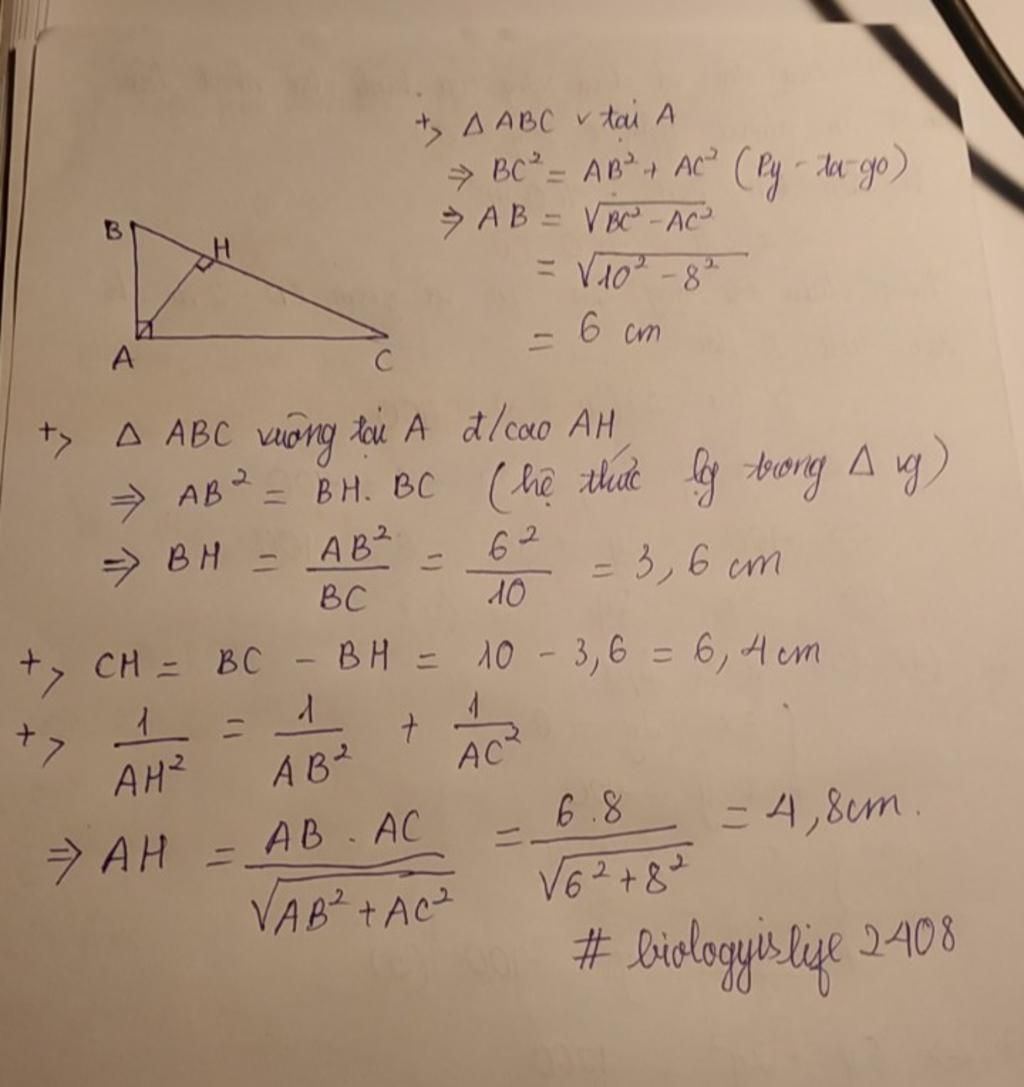 +> Δ ABC v tại A
⇒ BC² = AB² + AC² (Py-ta-go)
⇒ AB = √(BC² - AC²)
= √(10² - 8²)
= 6 cm
B
H
A
C
+> Δ ABC vuông tại A đ/cao AH
⇒ AB² = BH. BC (hệ thức lg trong Δ vg)
⇒ BH = AB²/BC = 6²/10 = 3,6 cm
+> CH = BC - BH = 10 - 3,6 = 6,4cm
+> 1/AH² = 1/AB² + 1/AC²
⇒ AH = AB . AC/√(AB² + AC²) = 6.8/√(6² + 8²) = 4,8cm.
# biologyislife 2408